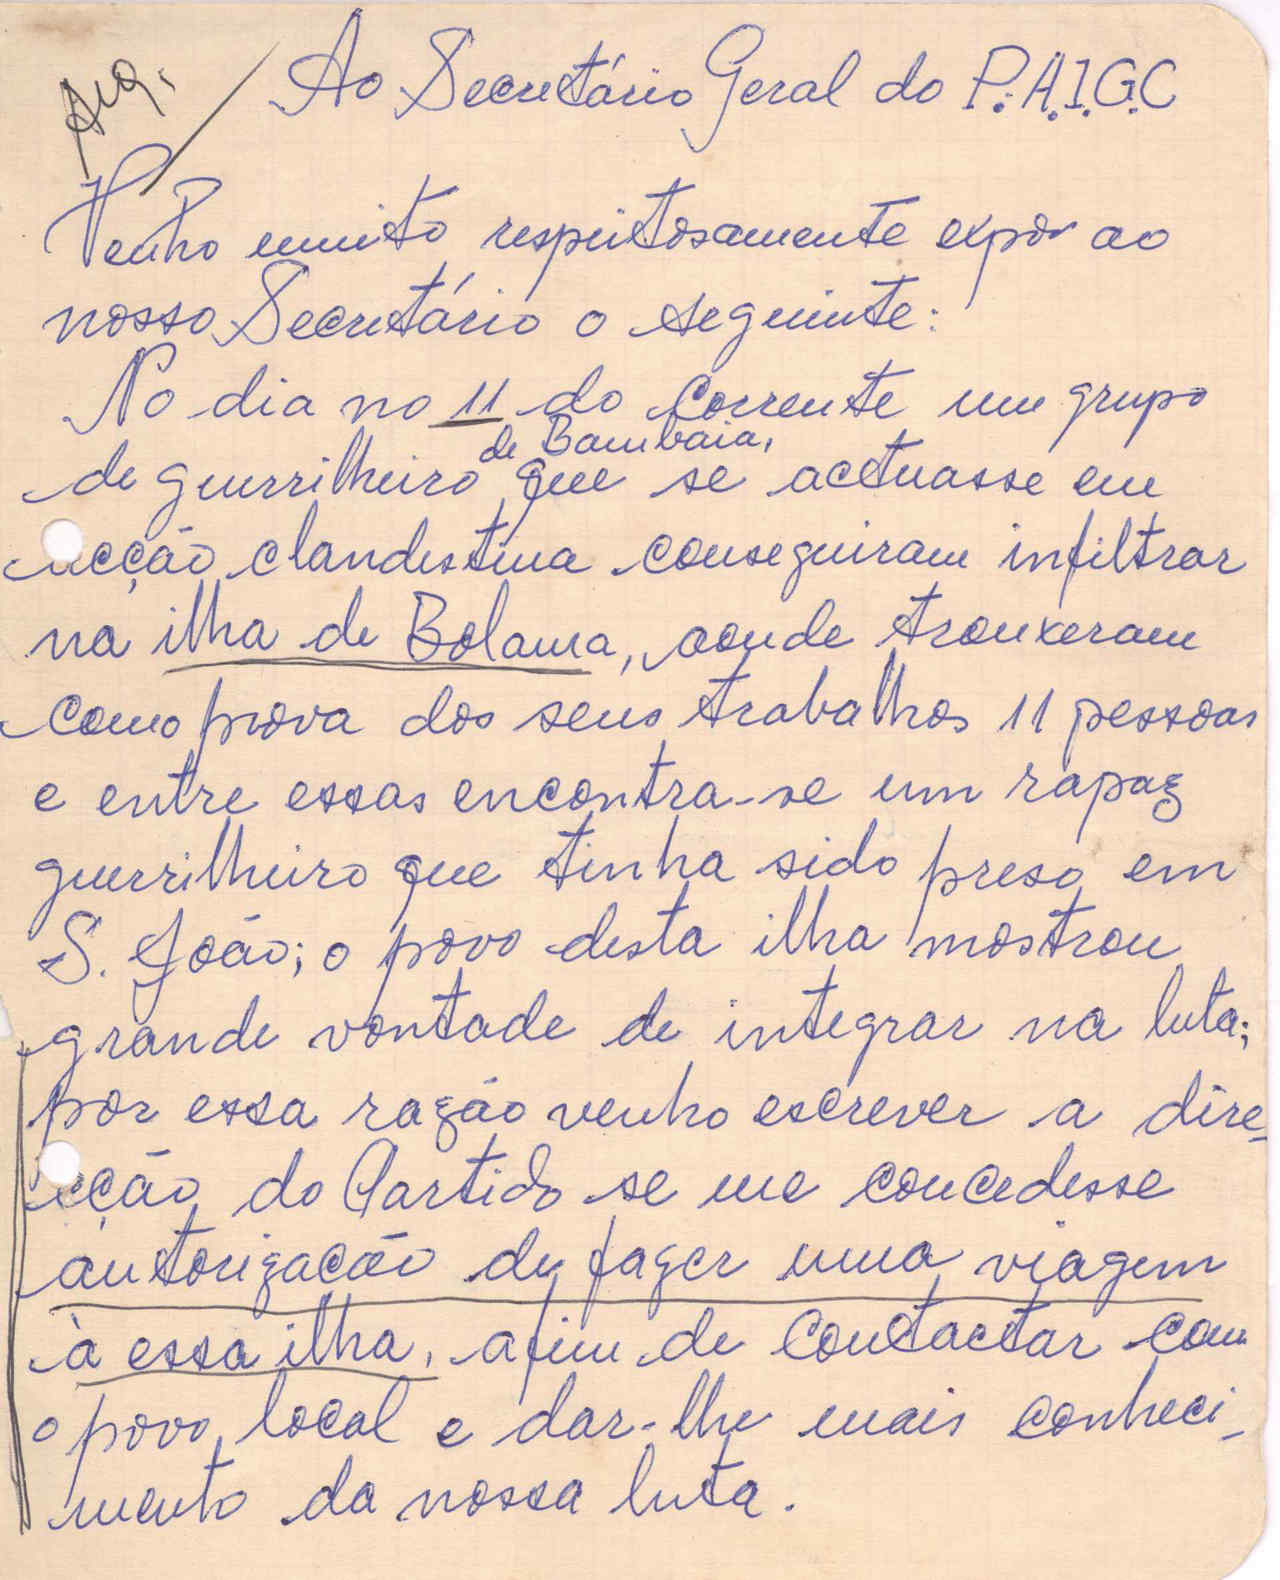 Arq.
Ao Secretário Geral do P.A.I.G.C
Venho muito respeitosamente expor ao
nosso Secretário o seguinte:
No dia no 11 do corrente um grupo
de Bambaia,
de guerrilheiro que se actuasse em
acção clandestina conseguiram infiltrar
na ilha de Bolama, aonde trouxeram
como prova dos seus trabalhos 11 pessoas
e entre essas encontra-se um rapaz
guerrilheiro que tinha sido preso em
S. João; o povo desta ilha mostrou
grande vontade de integrar na luta;
por essa razão venho escrever a dire-
cção do Partido se me concedesse
autorização de fazer uma viagem
à essa ilha, afim de contactar com
o povo local e dar-lhe mais conheci-
mento da nossa luta.